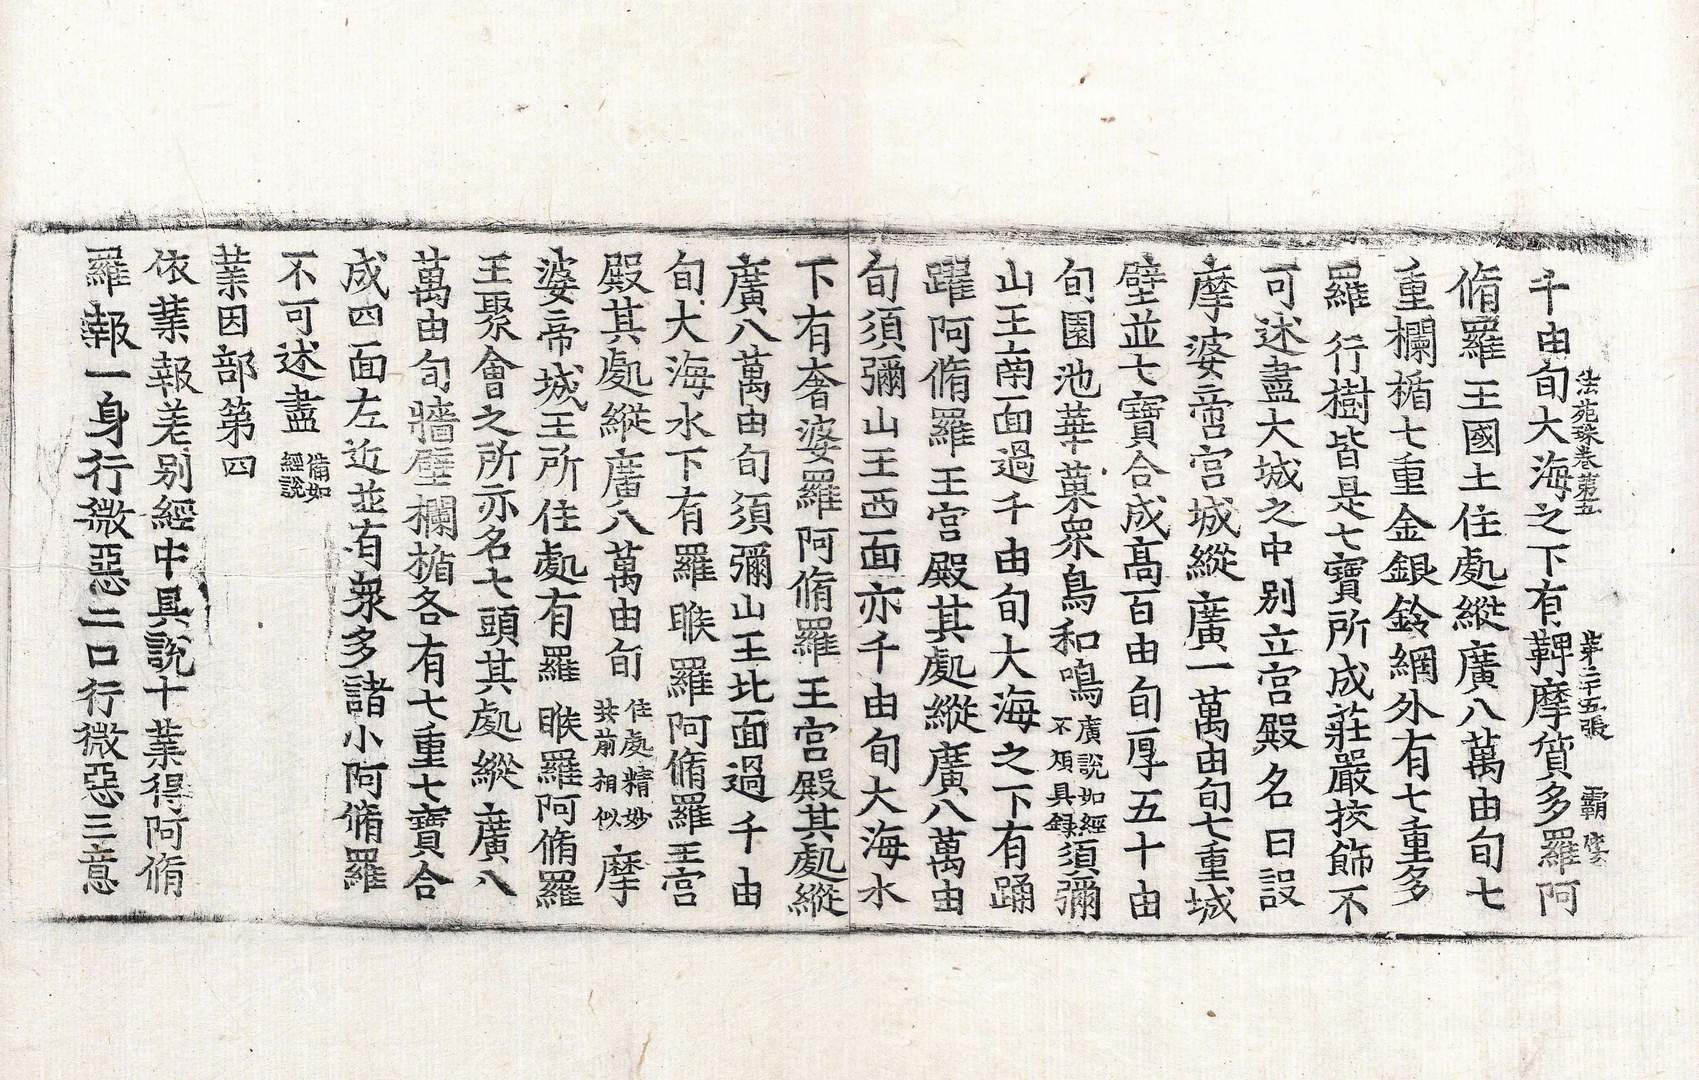 法苑珠卷第五　第二十五張　霸
千由旬大海之下有鞞摩質多羅阿
脩羅王國土住處縱廣八萬由旬七
重欄楯七重金銀鈴網外有七重多
羅行樹皆是七寶所成莊嚴挍飾不
可述盡大城之中別立宮殿名曰設
摩婆帝宮城縱廣一萬由旬七重城
壁並七寶合成高百由旬厚五十由
旬園池華菓衆鳥和鳴廣說如經不煩具録須彌
山王南面過千由旬大海之下有踊
躍阿脩羅王宮殿其處縱廣八萬由
旬須彌山王西面亦千由旬大海水
下有奢婆羅阿脩羅王宮殿其處縱
廣八萬由旬須彌山王北面過千由
旬大海水下有羅睺羅阿脩羅王宮
殿其處縱廣八萬由旬住處精妙共前相似摩
婆帝城王所住處有羅睺羅阿脩羅
王聚會之所亦名七頭其處縱廣八
萬由旬牆壁欄楯各有七重七寶合
成四面左近並有衆多諸小阿脩羅
不可述盡備如經說
業因部第四
依業報差別經中具說十業得阿脩
羅報一身行微惡二口行微惡三意